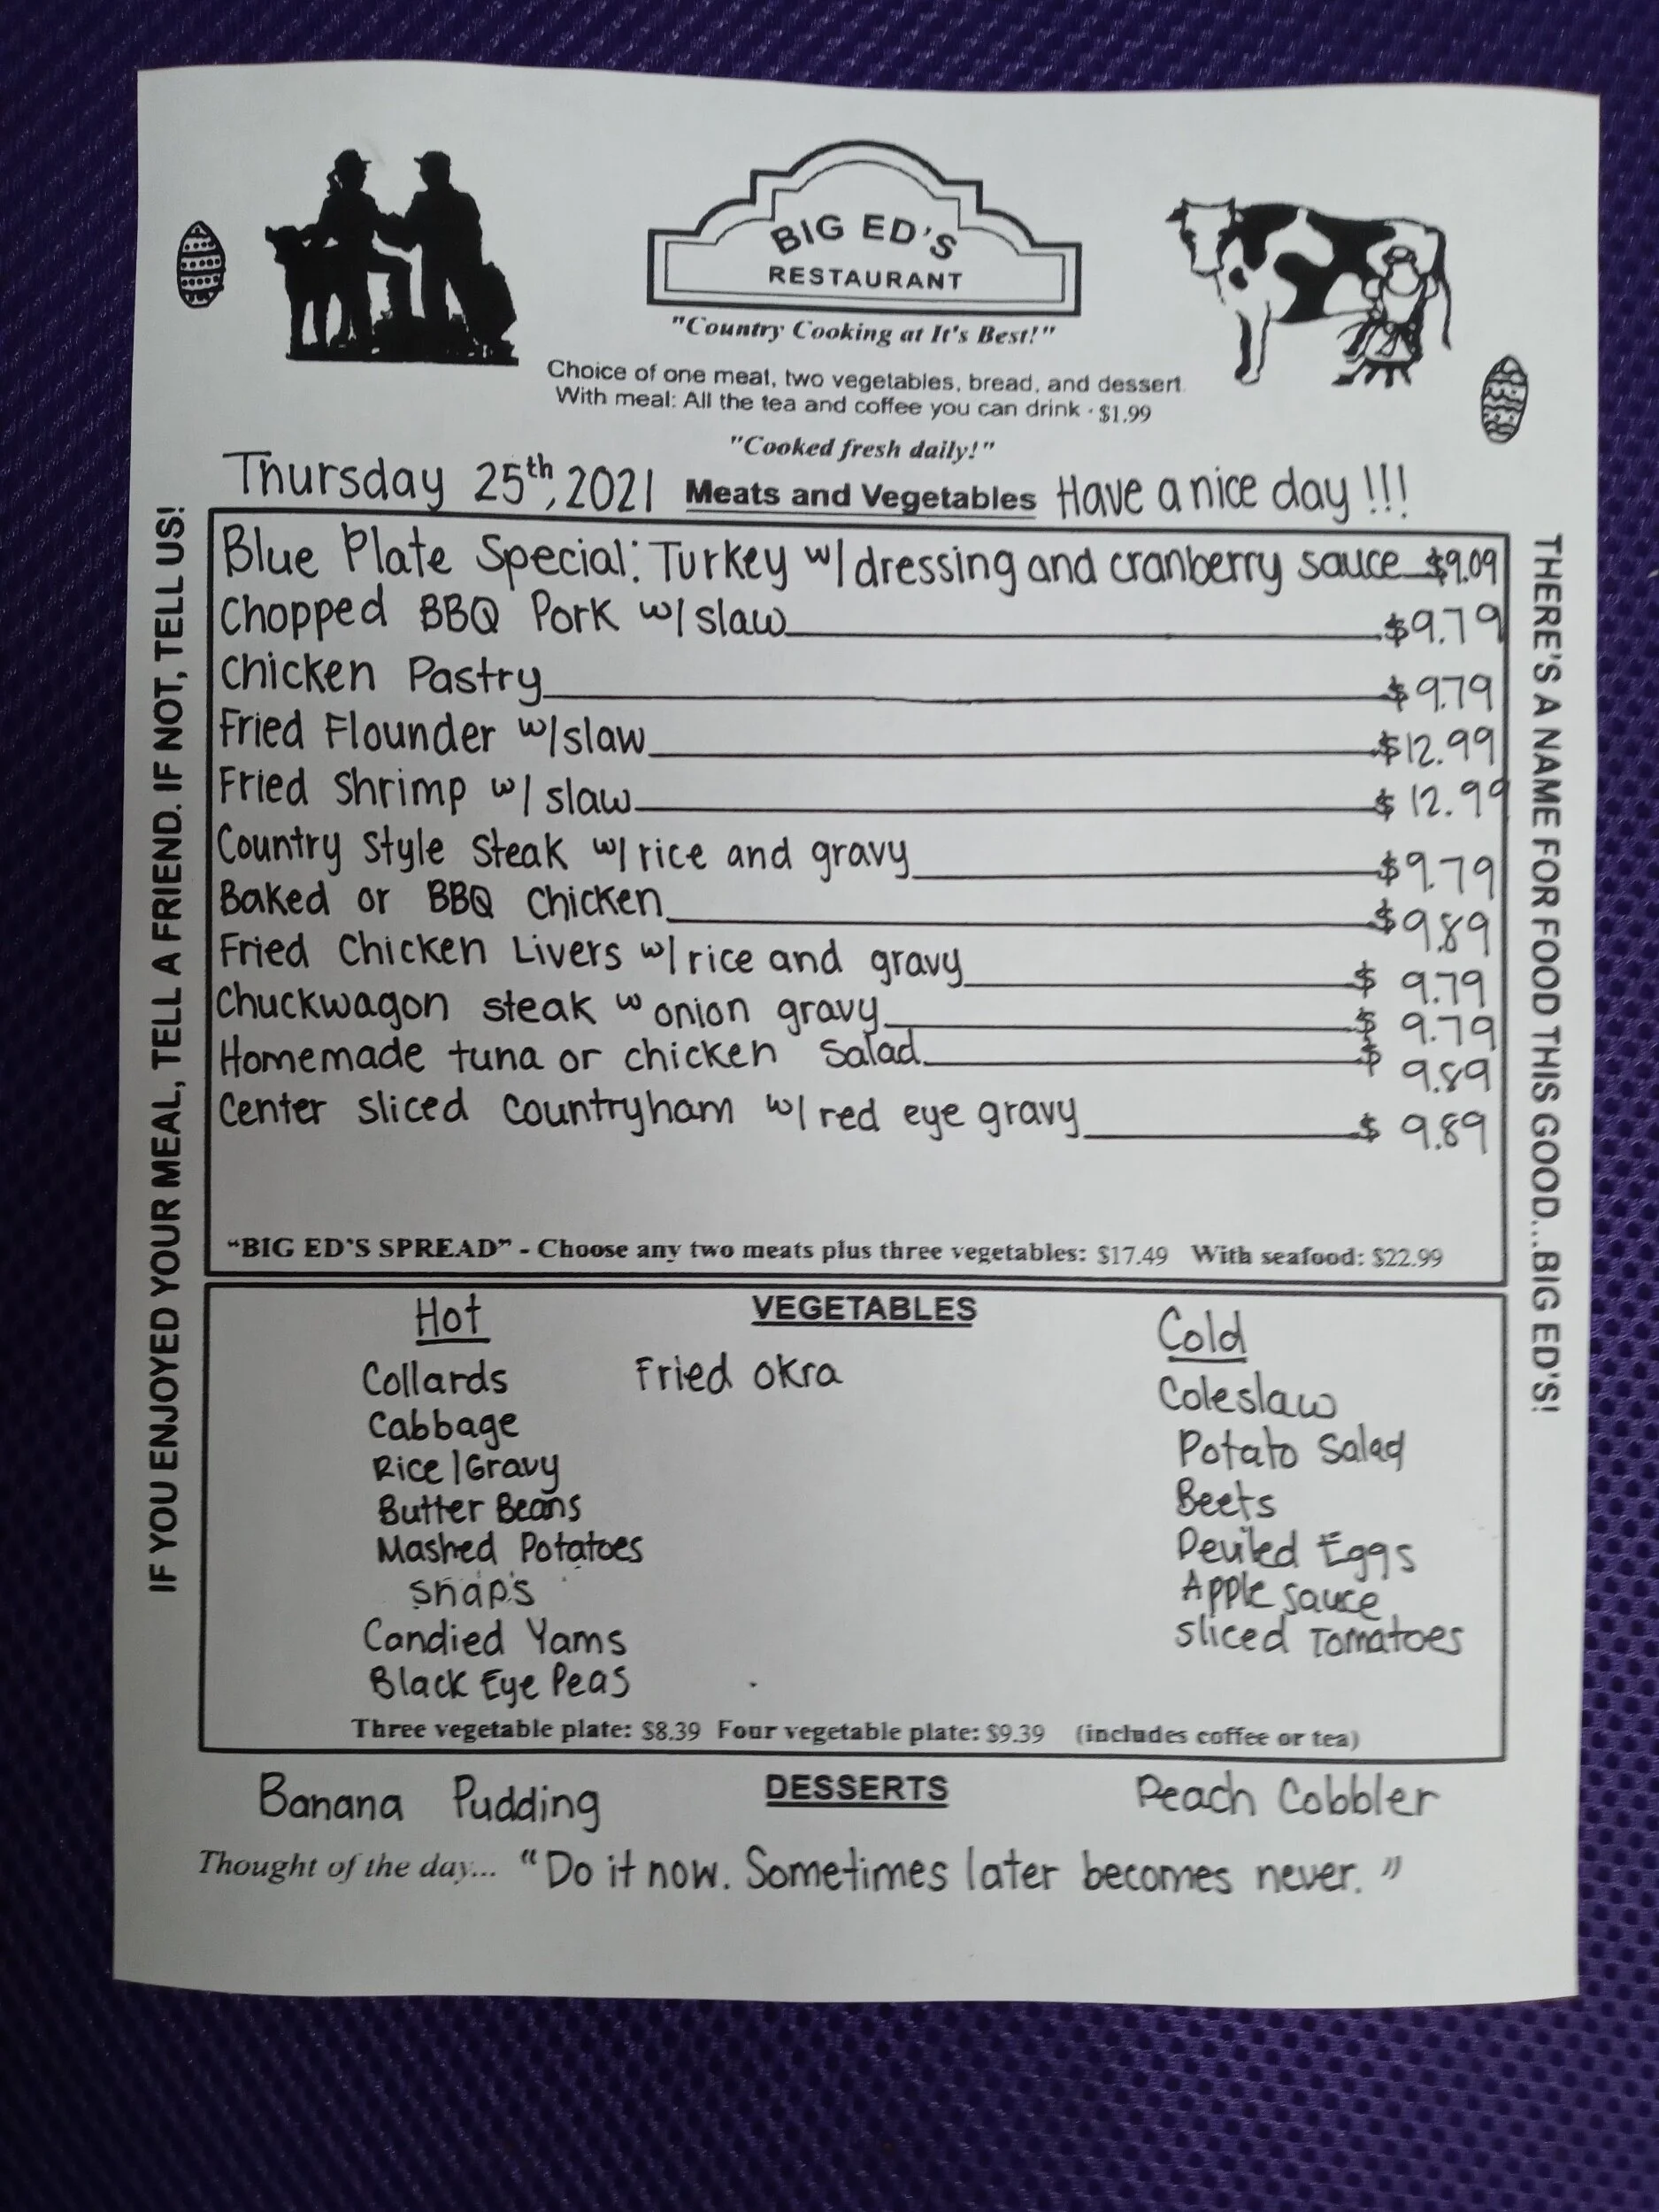 BIG ED'S
RESTAURANT
"Country Cooking at It's Best!"
Choice of one meat, two vegetables, bread, and dessert.
With meal: All the tea and coffee you can drink - $1.99
"Cooked fresh daily!"
Thursday 25th, 2021 Meats and Vegetables Have a nice day!!!
Blue Plate Special: Turkey w/ dressing and cranberry sauce $9.09
Chopped BBQ Pork w/ slaw $9.79
Chicken Pastry $9.79
Fried Flounder w/ slaw $12.99
Fried Shrimp w/ slaw $12.99
Country Style Steak w/ rice and gravy $9.79
Baked or BBQ Chicken $9.89
Fried Chicken Livers w/ rice and gravy $9.79
Chuckwagon steak w onion gravy $9.79
Homemade tuna or chicken salad $9.89
Center sliced Countryham w/ red eye gravy $9.89
"BIG ED'S SPREAD" - Choose any two meats plus three vegetables: $17.49 With seafood: $22.99
VEGETABLES
Hot
Collards
Cabbage
Rice/Gravy
Butter Beans
Mashed Potatoes
Snap's
Candied Yams
Black Eye Peas
Fried Okra
Cold
Coleslaw
Potato Salad
Beets
Deviled Eggs
Apple Sauce
Sliced Tomatoes
Three vegetable plate: $8.39 Four vegetable plate: $9.39 (includes coffee or tea)
DESSERTS
Banana Pudding
Peach Cobbler
Thought of the day... "Do it now. Sometimes later becomes never."
IF YOU ENJOYED YOUR MEAL, TELL A FRIEND. IF NOT, TELL US!
THERE'S A NAME FOR FOOD THIS GOOD...BIG ED'S!